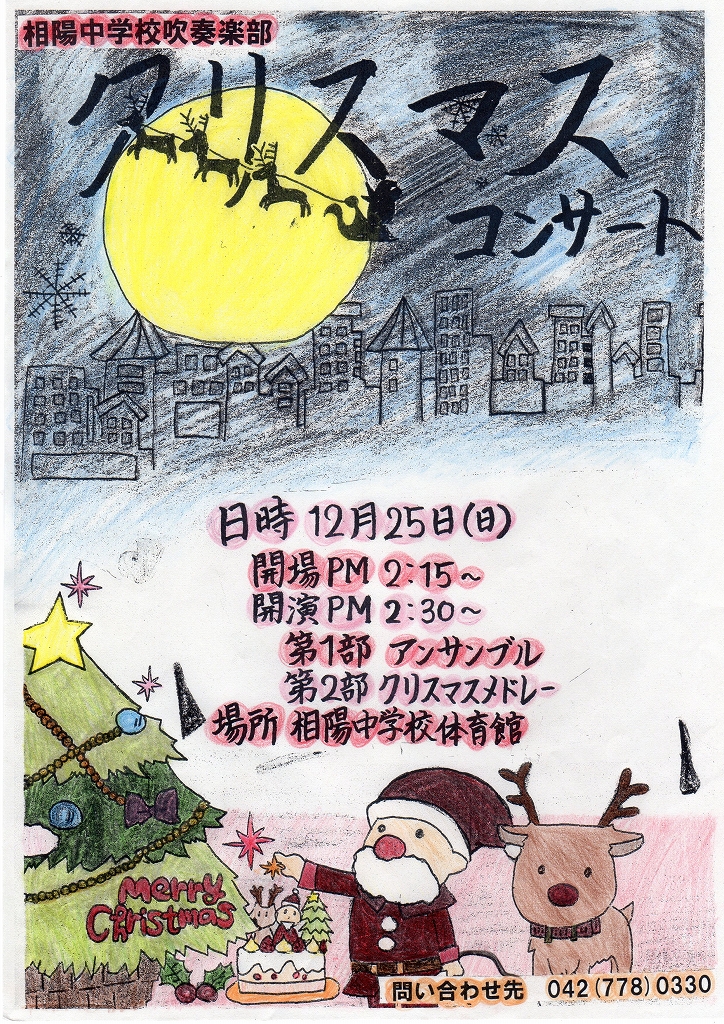 相陽中学校吹奏楽部
クリスマス
コンサート
日時 12月25日(日)
開場PM 2:15~
開演PM 2:30~
第1部 アンサンブル
第2部 クリスマスメドレー
場所 相陽中学校体育館
Merry
Christmas
問い合わせ先 042(778)0330